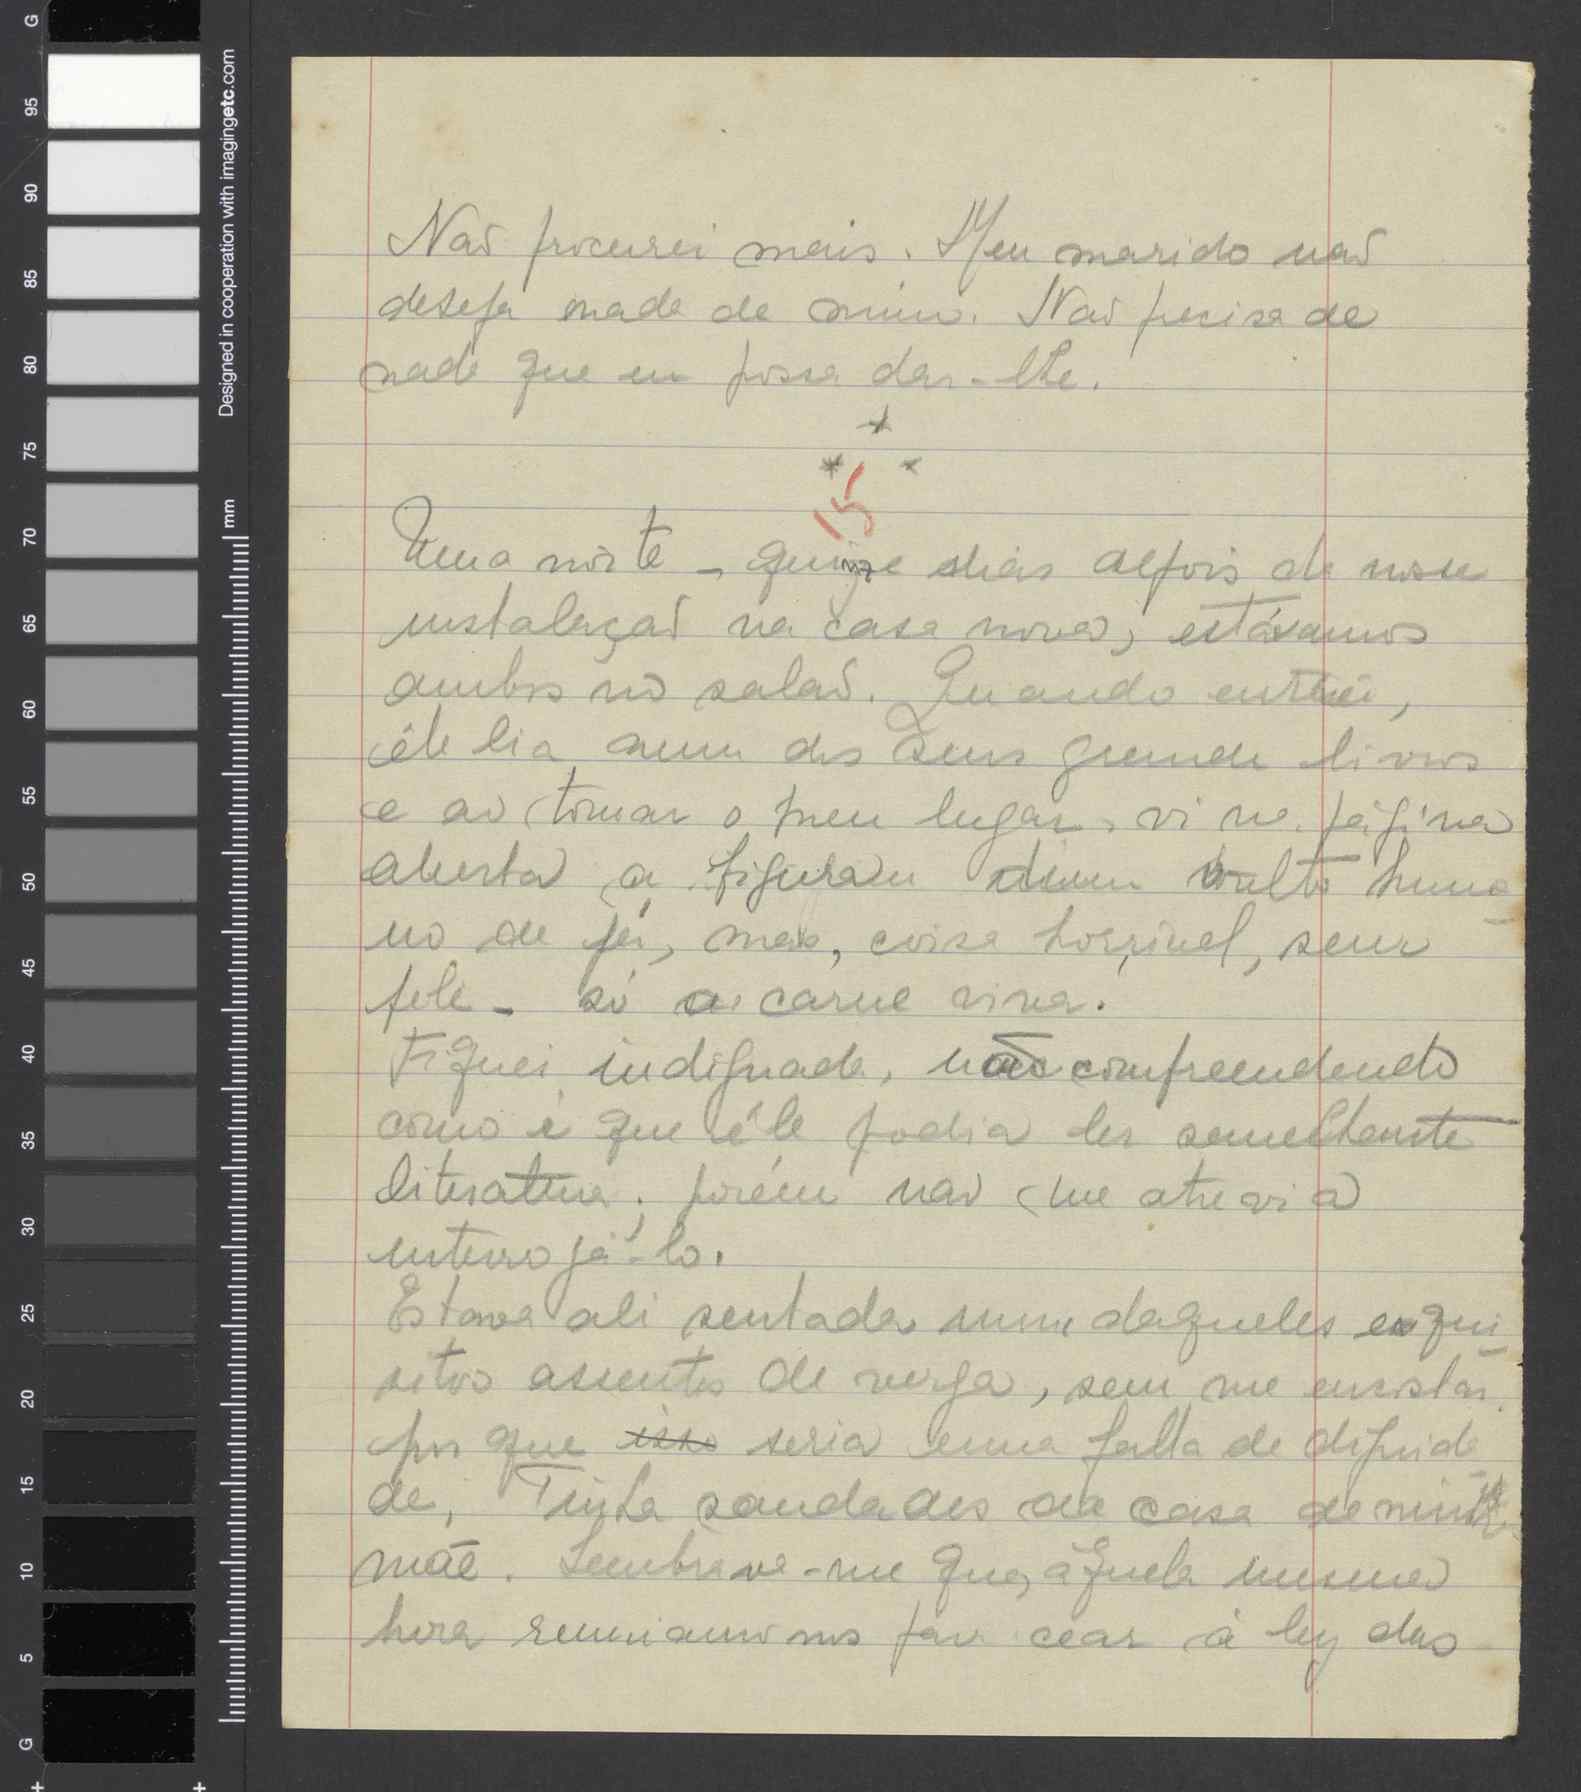 G
95
90
85
80
75
70
65
60
55
50
45
40
35
30
25
20
15
10
5
G
Designed in cooperation with imagingetc.com
mm
Não procurei mais. Meu marido não
deseja nada de mim. Não precisa de
nada que eu possa dar-lhe.
* * *
15
Uma noite - quinze dias depois de nossa
instalação na casa nova, estávamos
ambos no salão. Quando entrei,
êle lia num dos seus grandes livros
e ao tomar o meu lugar, vi na página
aberta a figura dum vulto huma-
no de pé, mas, coisa horrível, sem
pele - só a carne viva.
Fiquei indignada, não compreendendo
como é que êle podia ler semelhante
literatura; porém não me atrevi a
interrogá-lo.
Estava ali sentada num daqueles esqui-
sitos assentos de verga, sem me encostar,
por que isso seria uma falta de dignida-
de. Tinha saudades da casa de minha
mãe. Lembrava-me que, àquela mesma
hora reuniamo nos para cear à luz das